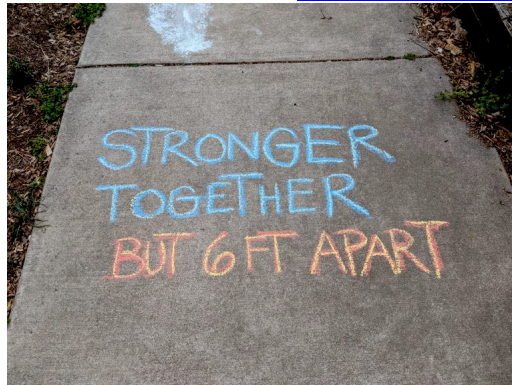 STRONGER
TOGETHER
BUT 6 FT APART